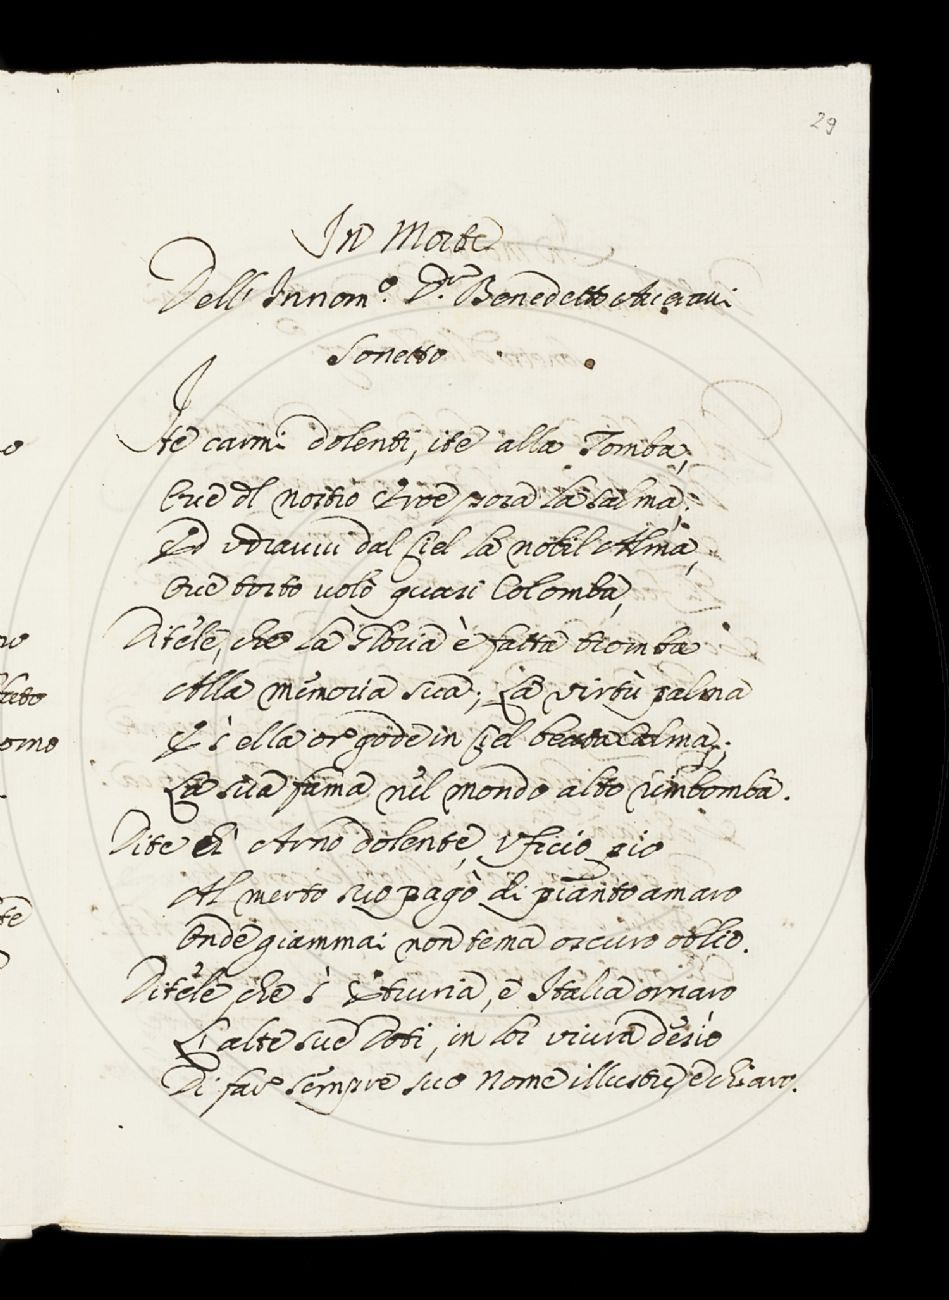 29
In Morte
Dell' Innom.º D.r Benedetto
Sonetto
Ite carmi dolenti, ite alla Tomba,
Ove del nostro Eroe posa la salma;
Ed dal Ciel la nobil Alma,
Ove tosto volò quasi Colomba,
Ditele, che la Gloria è fatta tromba
Alla memoria sua; La virtù palma
E s' ella or gode in Ciel beata calma;
La sua fama nel mondo alto rimbomba.
Dite ch' Arno dolente, uficio pio
Al merto suo pagò di pianto amaro
Onde giammai non tema oscuro oblio.
Ditele che s' Etruria, e Italia ornaro
L' alte sue Doti, in lor viurà desio
Di far sempre suo Nome illustre, e chiaro.
o
no
omo
te